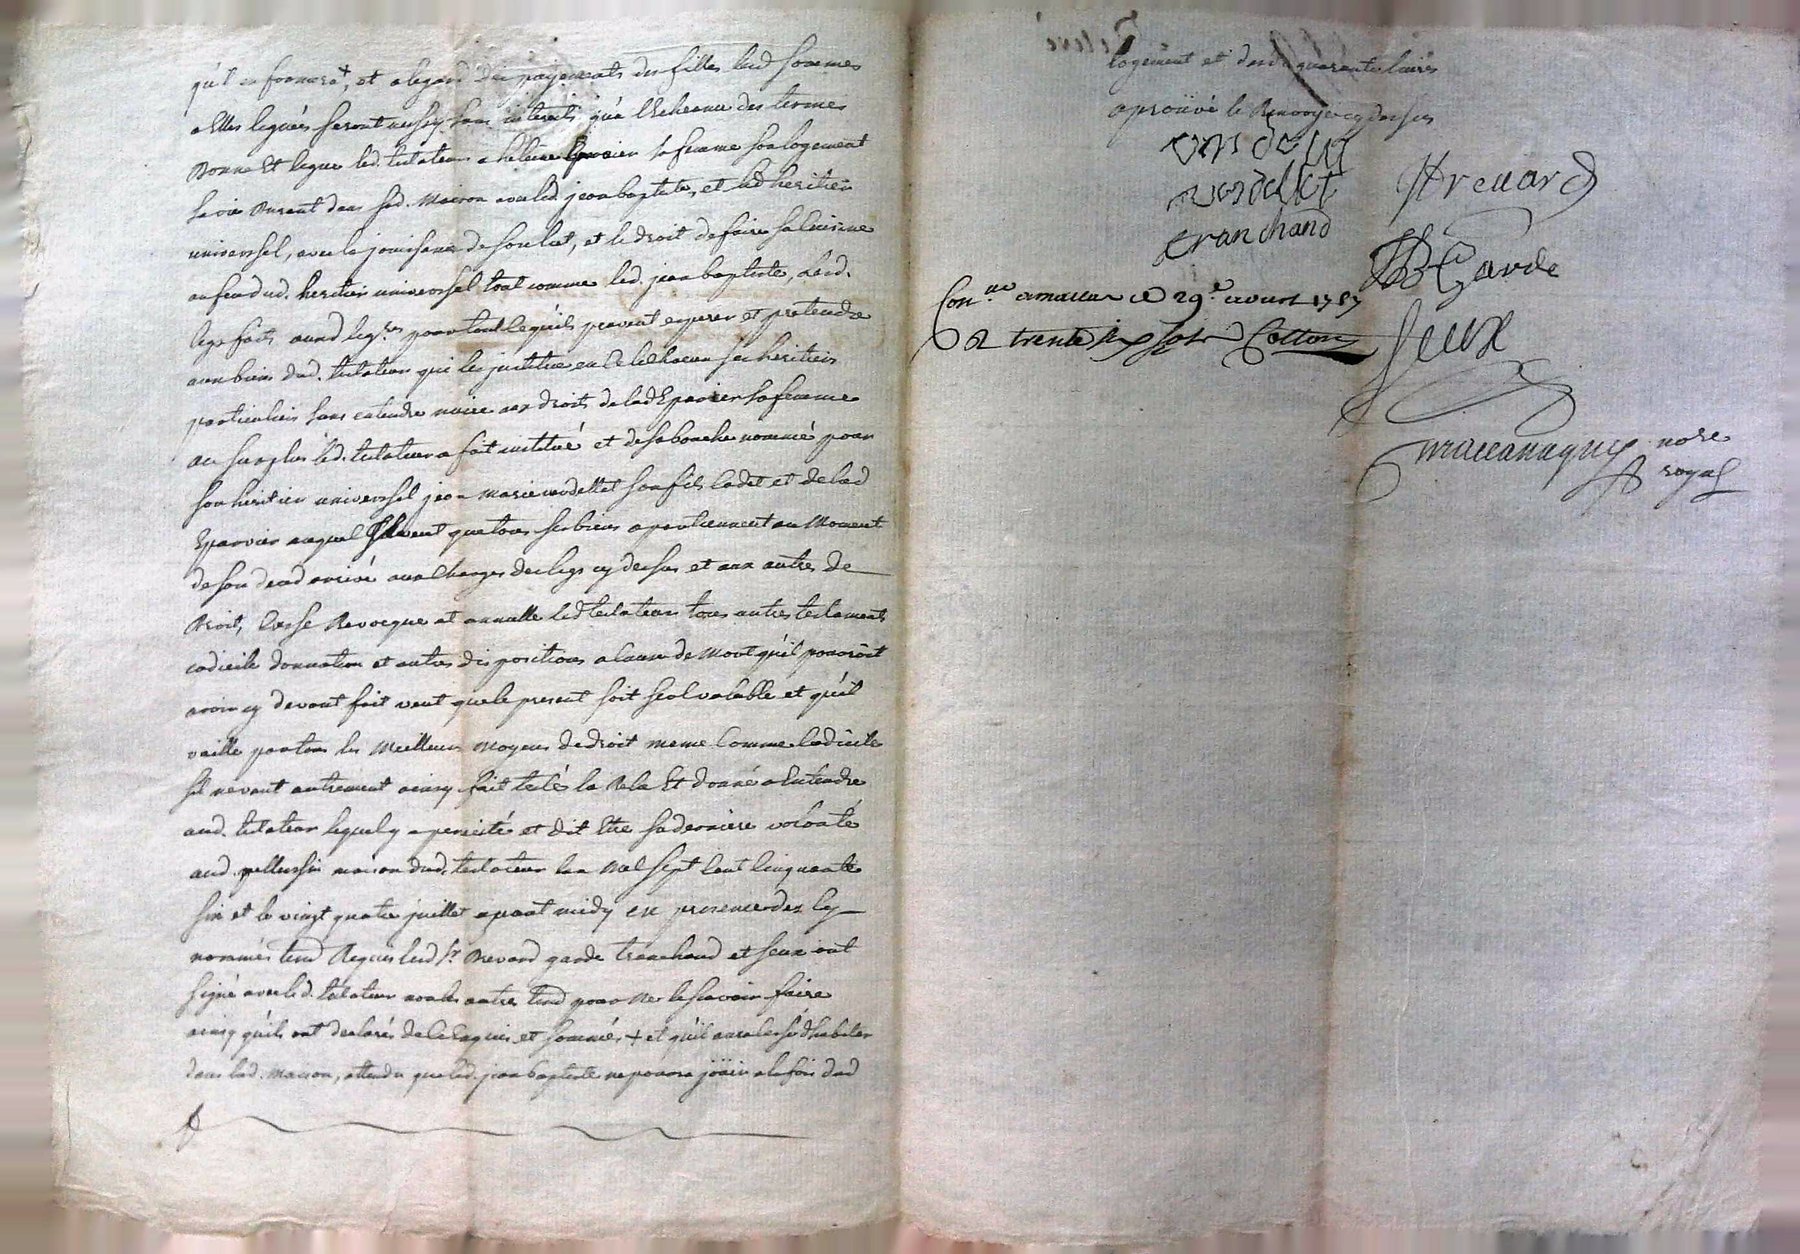 qu'il en formera+, et a legard des payements des filles lesd sommes
a Elles leguées seront aussy sans interests qu'a l'Echeance des termes
Donne Et legue led. testateur a helene Eparvier sa femme son logement
sa vie Durant dans sad. Maison avec led. jean baptiste, et sad heritier
universsel, avec la jouissance de son lict, et le droit de faire sa cuisine
au feu dud. heritier universsel tout comme led. jean baptiste, lesd.
legs faits auxd leg.res pour tout ce qu'ils peuvent esperer et pretendre
aux biens dud. testateur qui les institue en ce ses heritiers
particuliers sans entendre nuire aux droits de lad Eparvier sa femme
au surplus led. testateur a fait institué et de sa bouche nommé pour
son heritier universsel jean Marie verdellet son fils cadet et de lad
Eparvier auquel Il veut que tous ses biens apartiennent au Moment
de son deced arrivé aux Charges des legs cy dessus et aux autres de
Droit, Casse Revocque et annulle led testateur tous autres testaments
codicile donnation et autres dispositions a cause de Mort qu'il pouroit
avoir cy devant fait veut que le present soit seul valable et qu'il
vaille par tous les Meilleurs Moyens de droit meme Comme Codicile
sil ne vaut autrement ainsy fait testé lu Relu Et donné a Entendre
aud. testateur lequel y a persisté et dit Etre sa derniere volonté
aud. pellussin maison dud. testateur l'an Mil sept cent cinquante
six et le vingt quatre juillet avant midy en presence des cy
nommés temd Requis lesd Sr. Drevard garde tranchand et seux ont
signé avec led. testateur non les autres temd pour Ne le sçavoir faire
ainsy qu'ils ont declaré de ce Enquis et sommés + et qu'il aura cessé d'habiter
dans lad. maison, attendu que led. jean baptiste ne poura joüir a la fois dud
logement et desd. quarante livres
aproüvé le Renvoy cy dessus
verdellet
tranchand
Drevard
JB Garde
Seux
Con.lle a maclas ce 29.e avril 1757
R trente six sols Cotton
nore
royal